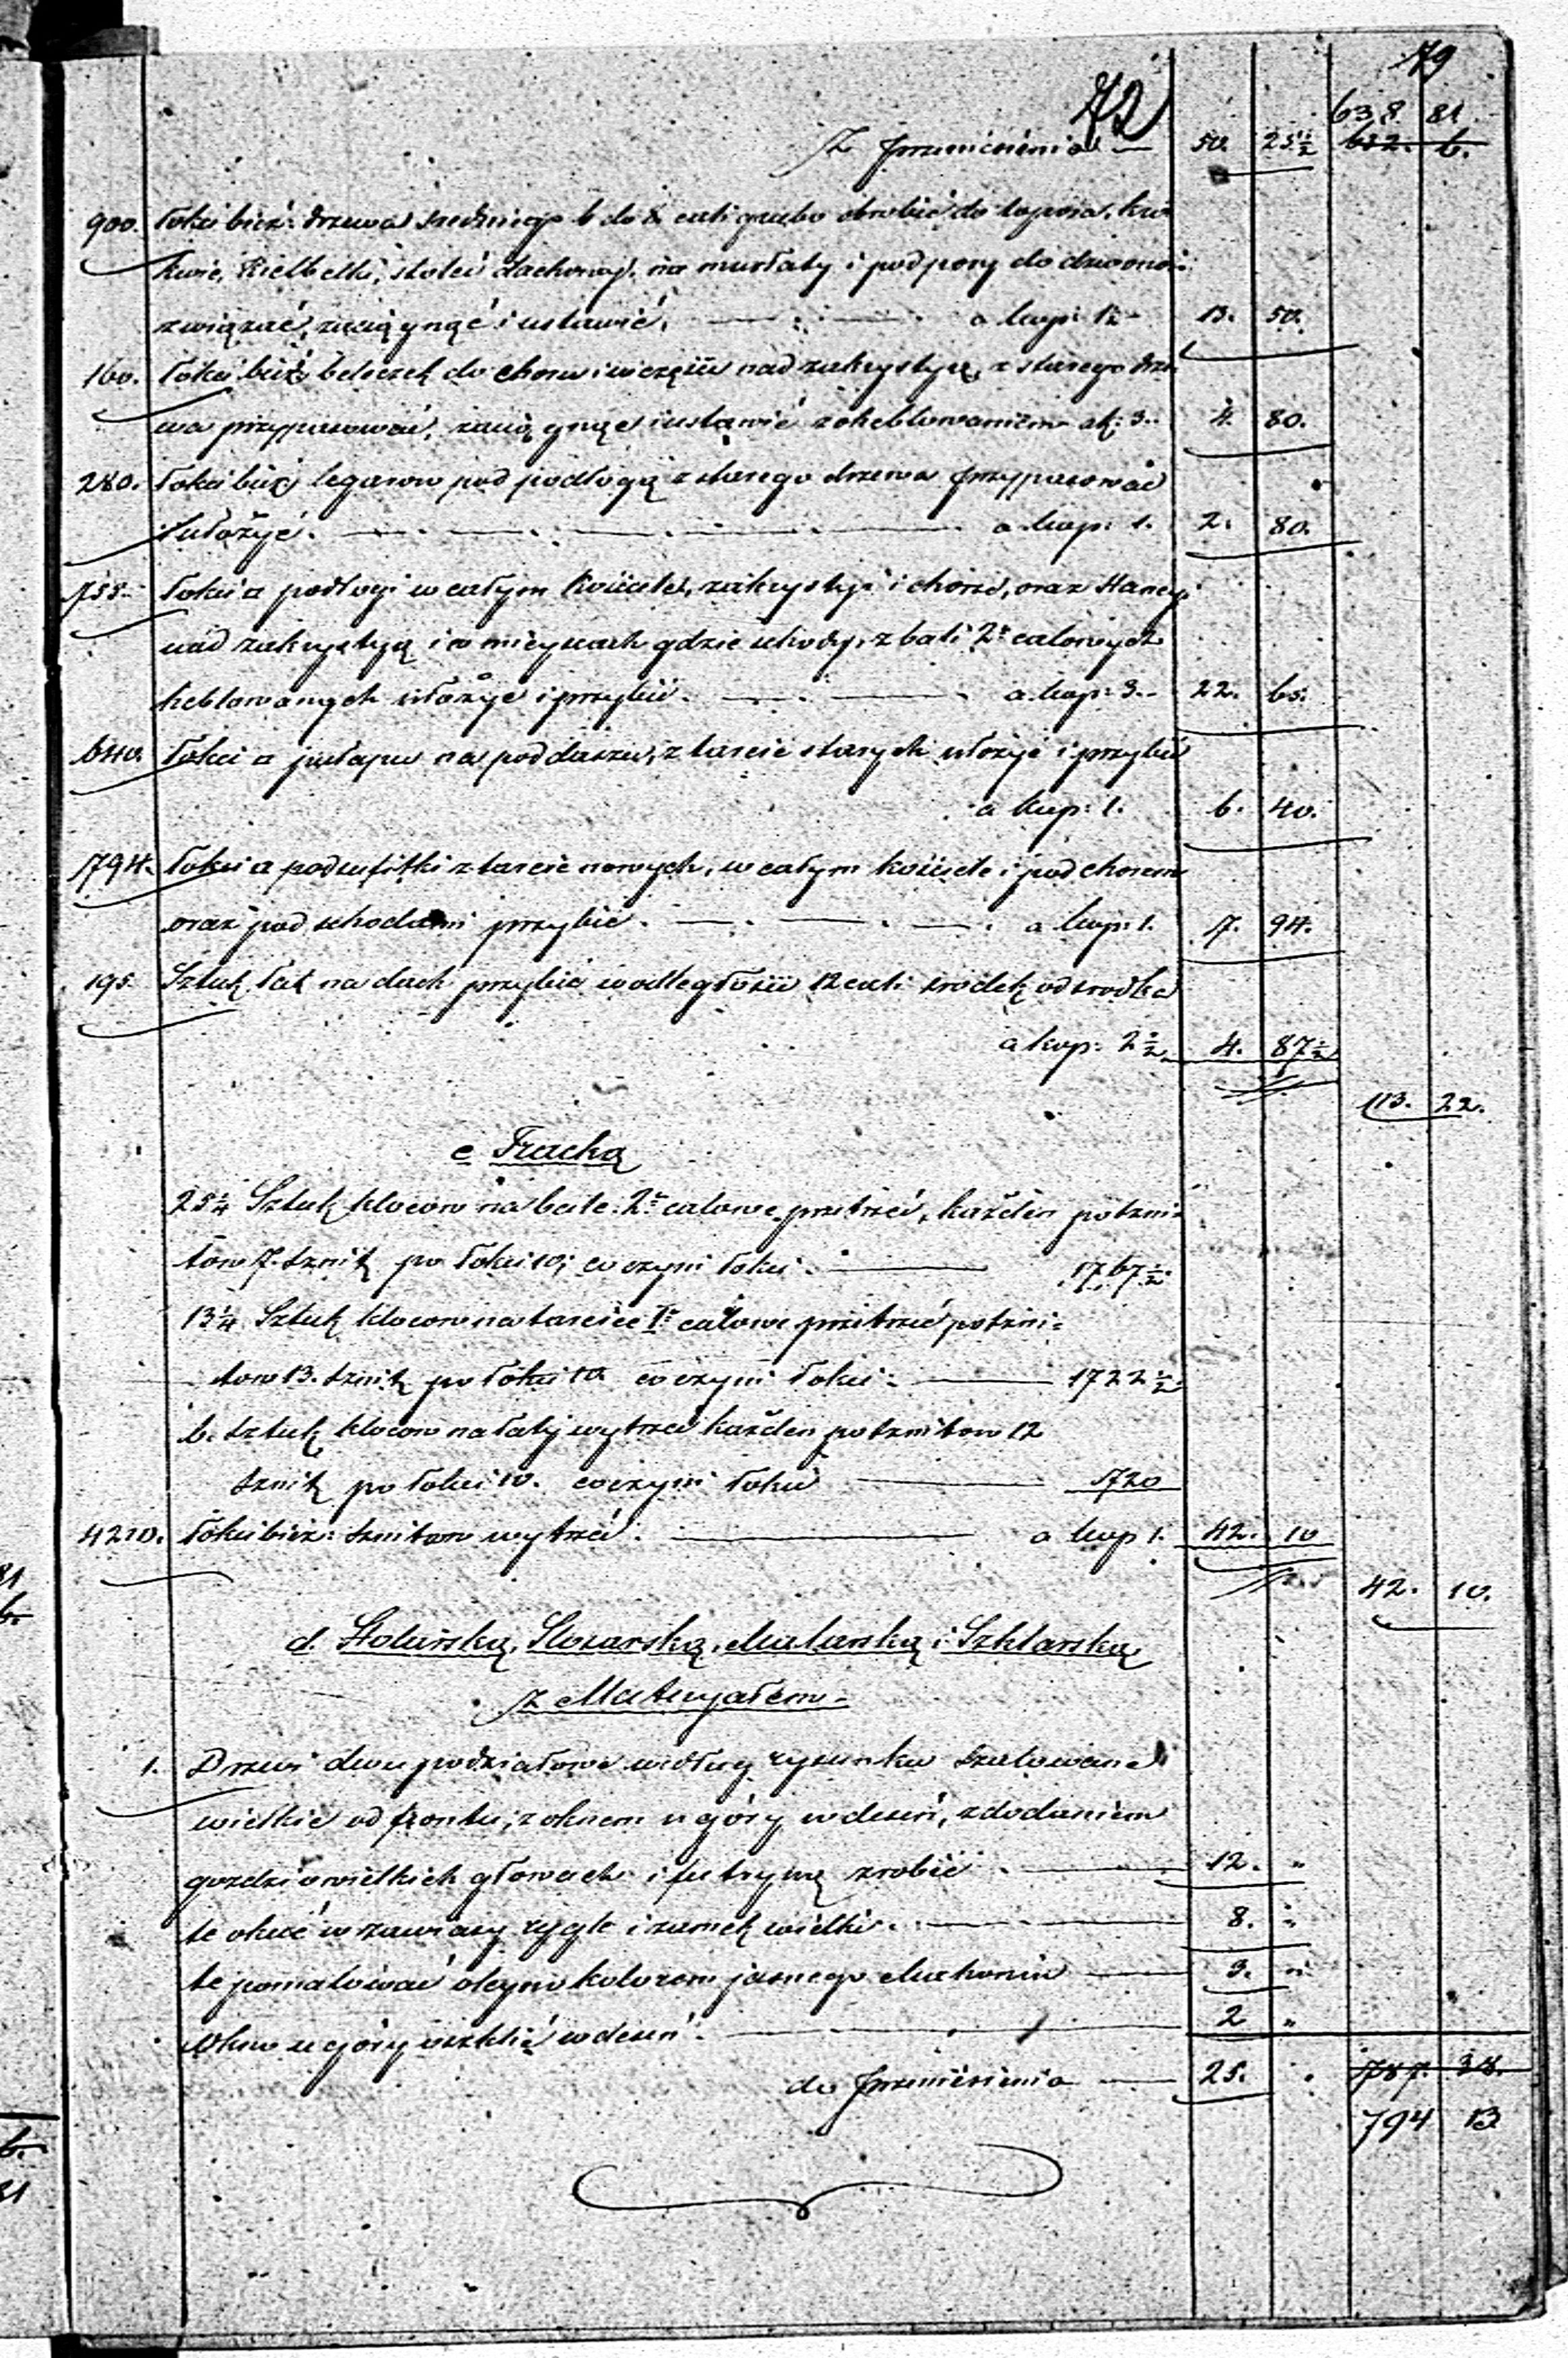 79
72
638 81
Z Przeniesienia — 50. 25½ 632. 6.
900. łokci bież: drzewa średniego 6 do 8 cali grubo obrobić do topora, kro
kwie, Kielbelki, stolec dachowy, na murłaty i podpory do dzwonni
związać, zaciągnąć i ustawić, — a kop: 1½ 13. 50.
160. łokci bież beleczek do choru i wczęści nad zakrystyą, z starego drze
wa przypasować, zaciągnąć i ustawić z oheblowaniem ak: 3. 4. 80.
280. łokci bież legarow pod podłogą z starego drzewa przypasować
i ułożyć. — a kop: 1. 2. 80.
755. łokci □ podłogi w całym Kościele, zakrystyi i chorze, oraz Stancyi
nad zakrystyą i w mieyscach gdzie schody, z bali 2" calowych
heblowanych ułożyć i przybić. — a kop: 3. 22. 65.
640. łokci □ pułapu na poddaszu, z tarcic starych ułożyć i przybić
a kop: 1. 6. 40.
794. łokci □ podsufitki z tarcic nowych, w całym kościele i pod chorem
oraz pod schodami przybić. — a kop: 1. 7. 94.
195. Sztuk łat na dach przybić w odległości 12 cali srodek od srodka
a kop: 2½ 4. 87½
113. 22.
c Tracka
25¼ Sztuk klocow na bale 2" calowe przetrzeć, każden potzni-
tow 7. sznit po łokci 10, co czyni łokci — 1767½
13¼ Sztuk klocow na tarcice 1" calowe przetrzeć potzni-
tow 13. sznit po łokci 10 co czyni łokci — 1722½
6. Sztuk klocow na łaty wytrzeć każden potznitow 12
sznit po łokci 10. co czyni łokci — 720
4210. łokci bież: sznitow wytrzeć. — a kop 1. 42. 10
42. 10.
d. Stolarską, Slosarską, Malarską i Szklarską
z Materyałem
1. Drzwi dwu podziałowe według rysunku szalowane
wielkie od frontu, z oknem u góry w deseń, z dodaniem
gozdzi o wielkich głowach i futrynę zrobić. — 12. "
te okuć w zawiasy rygle i zamek wielki. — 8. "
te pomalować oleyno kolorem jasnego Machoniu — 3. "
Okno u góry oszklić w deseń. — 2 "
do Przeniesienia — 25. . 787. 38.
794 13